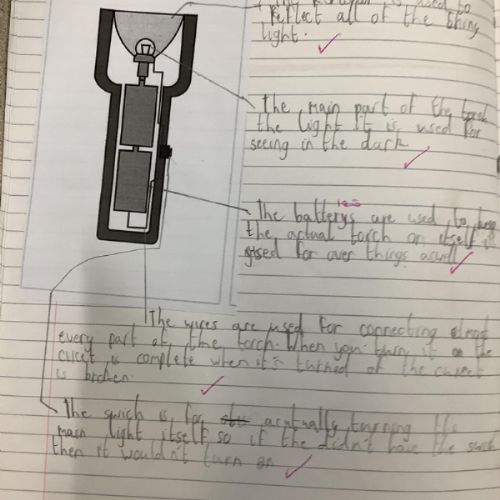 is used to
reflect all of the
light.
The main part of the torch
the light it is used for
seeing in the dark
The batterys ies are used to keep
the actual torch on itself it
used for over things aswell
The wires are used for connecting
every part of the torch. When you turn it on the
cuset is complete when it's turned of the cuset
is broken.
The swich is for acutually turning the
main light itself so if the didn't have the
then it wouldn't turn on